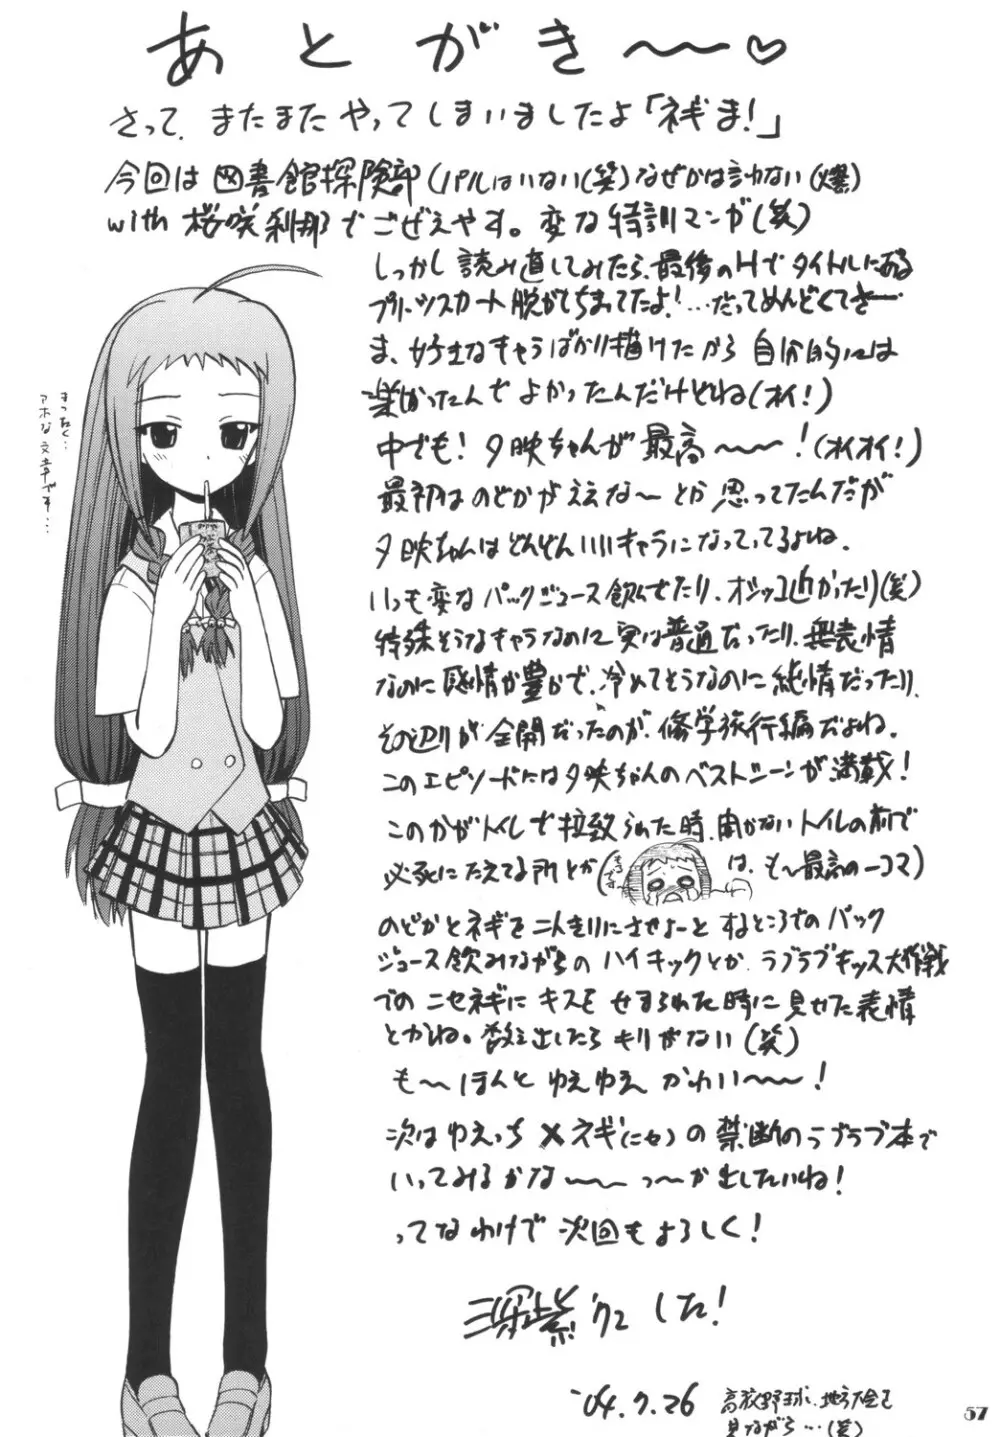 あとがき〜〜♡
さって、またまたやってしまいましたよ「ネギま!」
今回は図書館探険部(パルはいない(笑)なぜかは言わない(爆)
with 桜咲刹那でござえやす。変な特訓マンガ(笑)
しっかし読み直してみたら、最後のHでタイトルにある
プリーツスカート脱がせちまってたよ!…だってめんどくてさー
ま、好きなキャラばかり描けたから自分的には
楽しかったんでよかったんだけどね(オイ!)
中でも!夕映ちゃんが最高〜〜!(オイオイ!)
最初はのどかがええな〜とか思ってたんだが
夕映ちゃんはどんどんいいキャラになっていてるよね。
いっも変なパックジュース飲んでたり、オシッコ近かったり(笑)
特殊そうなキャラなのに実は普通だったり、無表情
なのに感情が豊かで、冷めてそうなのに純情だったり、
その辺りが全開だったのが、修学旅行編だよね。
このエピソードには夕映ちゃんのベストシーンが満載!
このかがトイレで拉致られた時、開かないトイレの前で
必死にたえてる所とか(は、も〜最高の一コマ)
のどかとネギを二人きりにさせよーとするところでのパック
ジュース飲みながらのハイキックとか、ラブラブキッス大作戦
でのニセネギにキスをせまられた時に見せた表情
とかね。数え出したらキリがない(笑)
も〜ほんとゆえゆえかわい〜〜!
次はゆえっち×ネギ(ニセ)の禁断のラブラブ本で
いってみるかな〜〜っ〜か出したいね!
ってなわけで次回もよろしく!
深紫でした!
'04.7.26
高校野球、地方大会を
見ながら…(笑)
まったく…
アホな文章です…
57